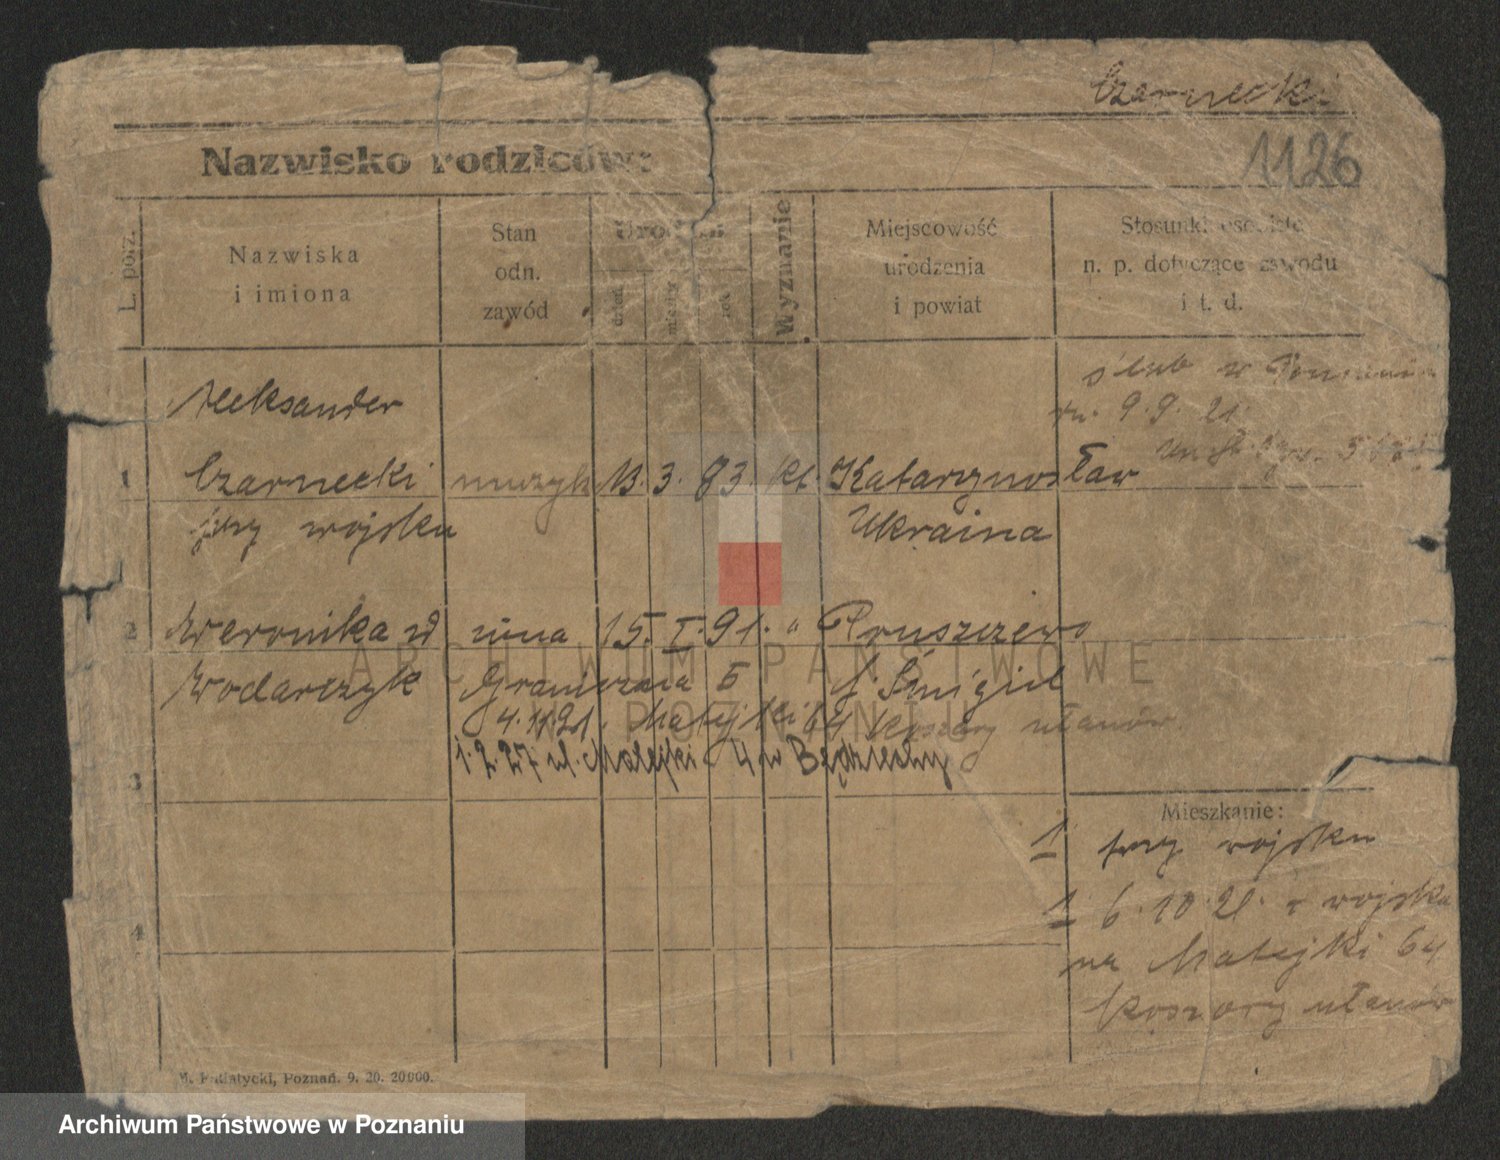 Czarnecki
1126
Nazwisko rodziców:
L. porz.
Nazwiska
i imiona
Stan
odn.
zawód
Urodzin
dzień
miesiąc
rok
Wyznanie
Miejscowość
urodzenia
i powiat
Stosunki osobiste
n. p. dotyczące zawodu
i t. d.
ślub w Poznaniu
dn. 9. 9. 21.
Aleksander
1 Czarnecki muzyk 13. 3. 83. kt. Katarzynosław
przy wojsku Ukraina
2 Weronika zd żona 15. I. 91. " Pruszczewo
Wodarczyk Graniczna 5 p. Śmigiel
4. 11. 21. Matejki 64 koszary ułanów.
1. 2. 27 ul. Matejki
3
Mieszkanie:
1 przy wojsku
1 6. 10. 21. z wojska
na Matejki 64
koszary ułanów
4
Poznań. 9. 20. 20000.
ARCHIWUM PAŃSTWOWE
W POZNANIU
Archiwum Państwowe w Poznaniu